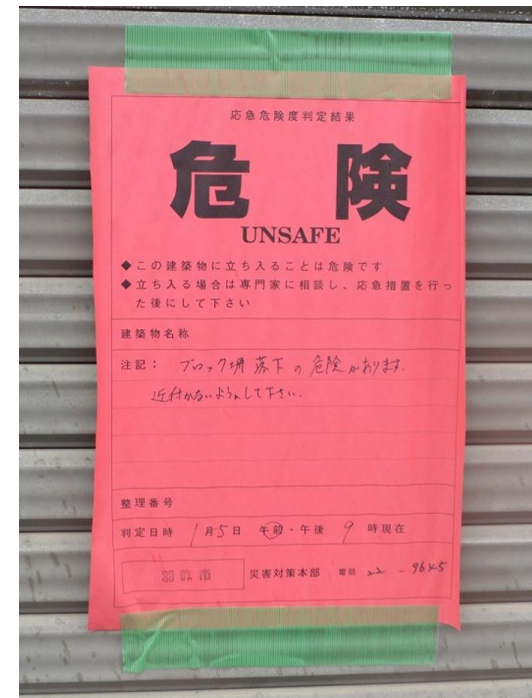 応急危険度判定結果
危険
UNSAFE
◆この建築物に立ち入ることは危険です
◆立ち入る場合は専門家に相談し、応急措置を行っ
た後にして下さい
建築物名称
注記： ブロック塀 落下の危険があります.
近付かないようにして下さい.
整理番号
判定日時 1月5日 午前・午後 9時現在
羽咋市 災害対策本部 電話 22-9645